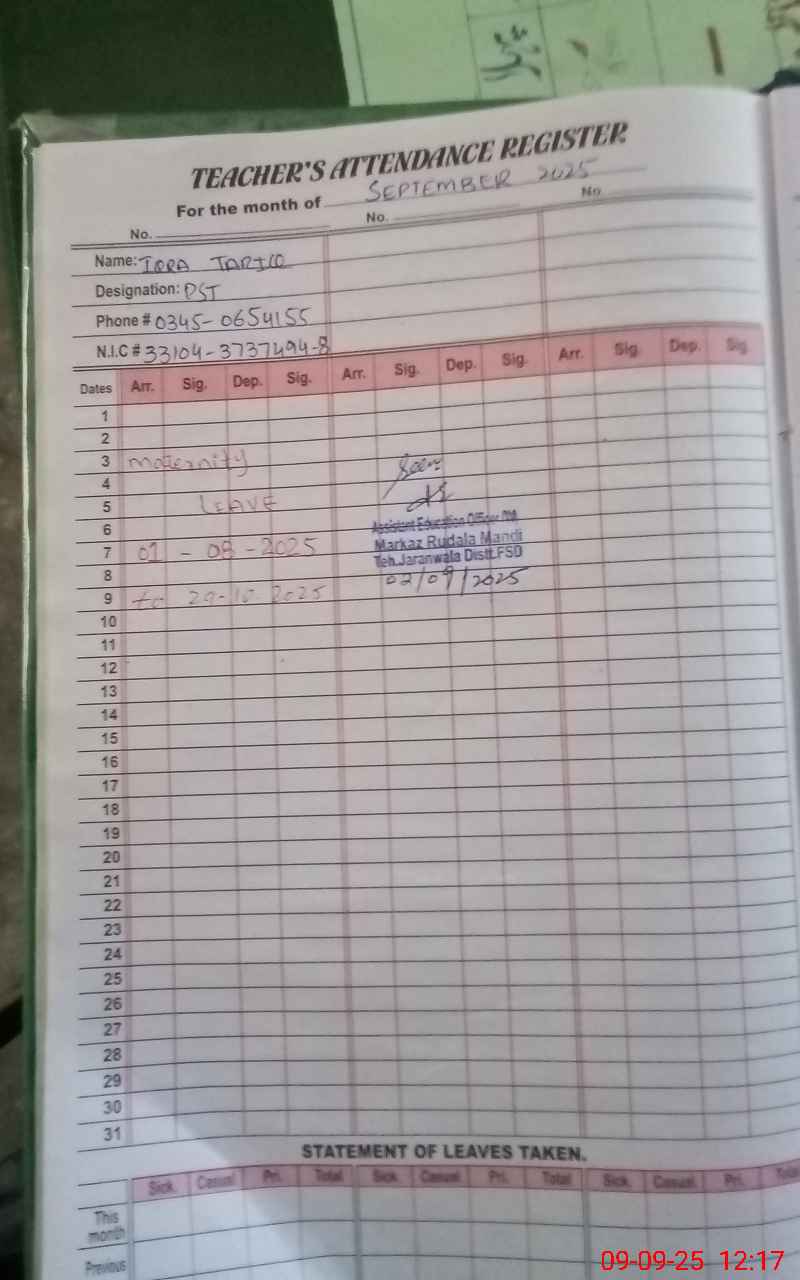 TEACHER'S ATTENDANCE REGISTER
For the month of SEPTEMBER 2025
No. No. No.
Name: IQRA TARIQ
Designation: PST
Phone # 0345-0654155
N.I.C # 33104-3737494-8
Dates Arr. Sig. Dep. Sig. Arr. Sig. Dep. Sig. Arr. Sig. Dep. Sig.
1
2
3 maternity
4 Seen
5 LEAVE
6 Assistant Education Officer
7 01 - 08 - 2025 Markaz Rudala Mandi
Teh. Jaranwala Distt. FSD
8 02/09/2025
9 to 29-10 2025
10
11
12
13
14
15
16
17
18
19
20
21
22
23
24
25
26
27
28
29
30
31
STATEMENT OF LEAVES TAKEN.
Sick. Casual. Pri. Total Sick. Casual. Pri. Total Sick. Casual. Pri. Total
This month
Previous
09-09-25 12:17